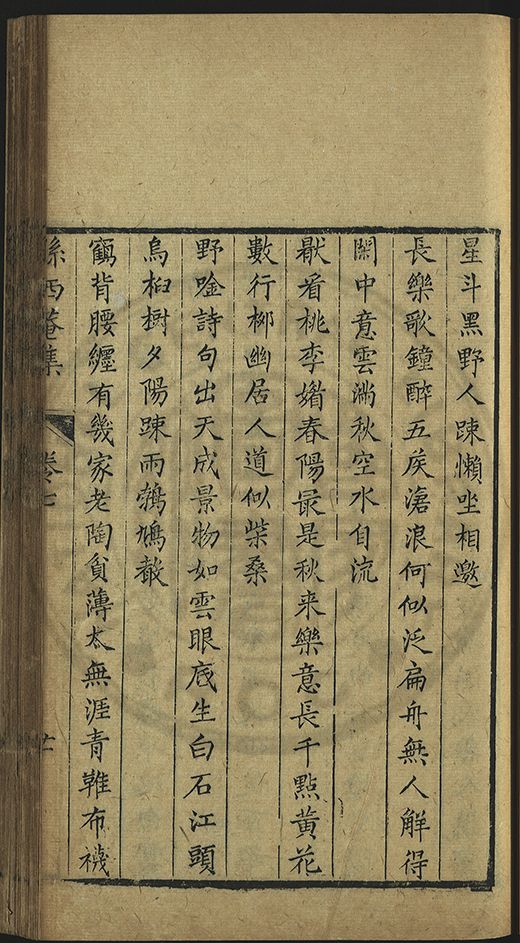 星斗黑野人踈懶坐相邀
長樂歌鐘醉五矦滄浪何似泛扁舟無人解得
闌中意雲滿秋空水自流
厭看桃李婿春陽最是秋来樂意長千點黃花
數行栁幽居人道似柴桑
野唫詩句出天成景物如雲眼底生白石江頭
烏桕樹夕陽踈雨鵓鳩聲
竊背腰纏有幾家老陶貧薄太無涯青鞵布襪
孫西菴集
卷七
十一